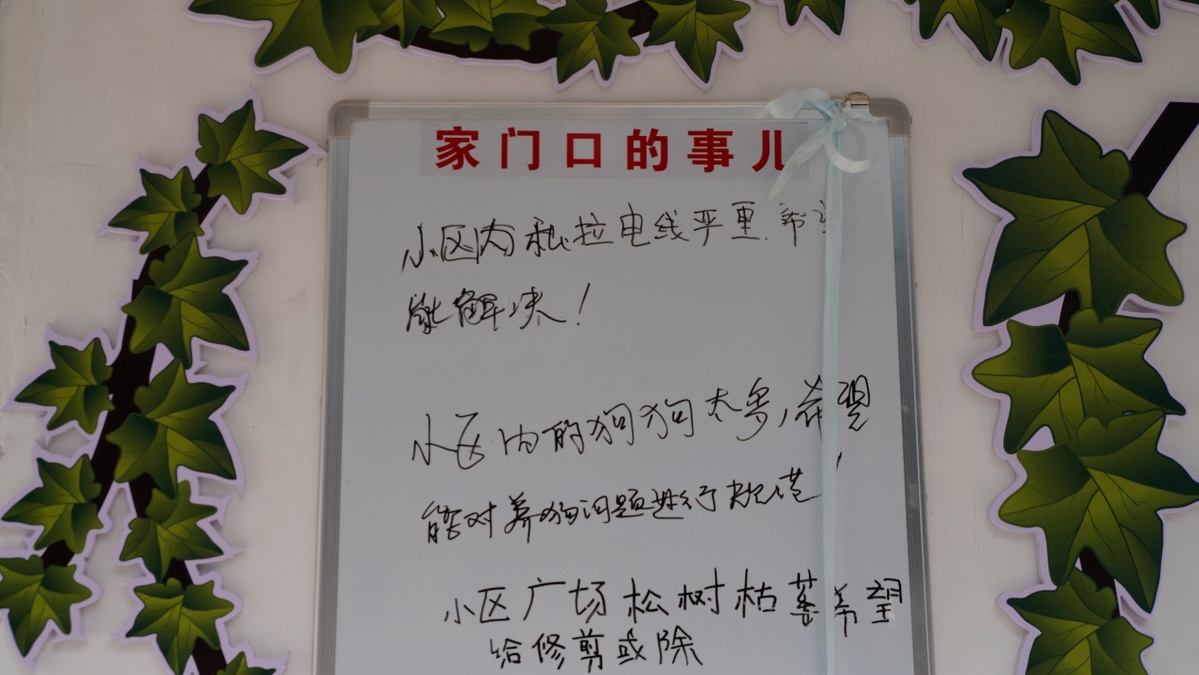 家门口的事儿
小区内私拉电线严重.希
能解决!
小区内的狗狗太多,希望
能对养狗问题进行规范!
小区广场松树枯萎希望
给修剪或除